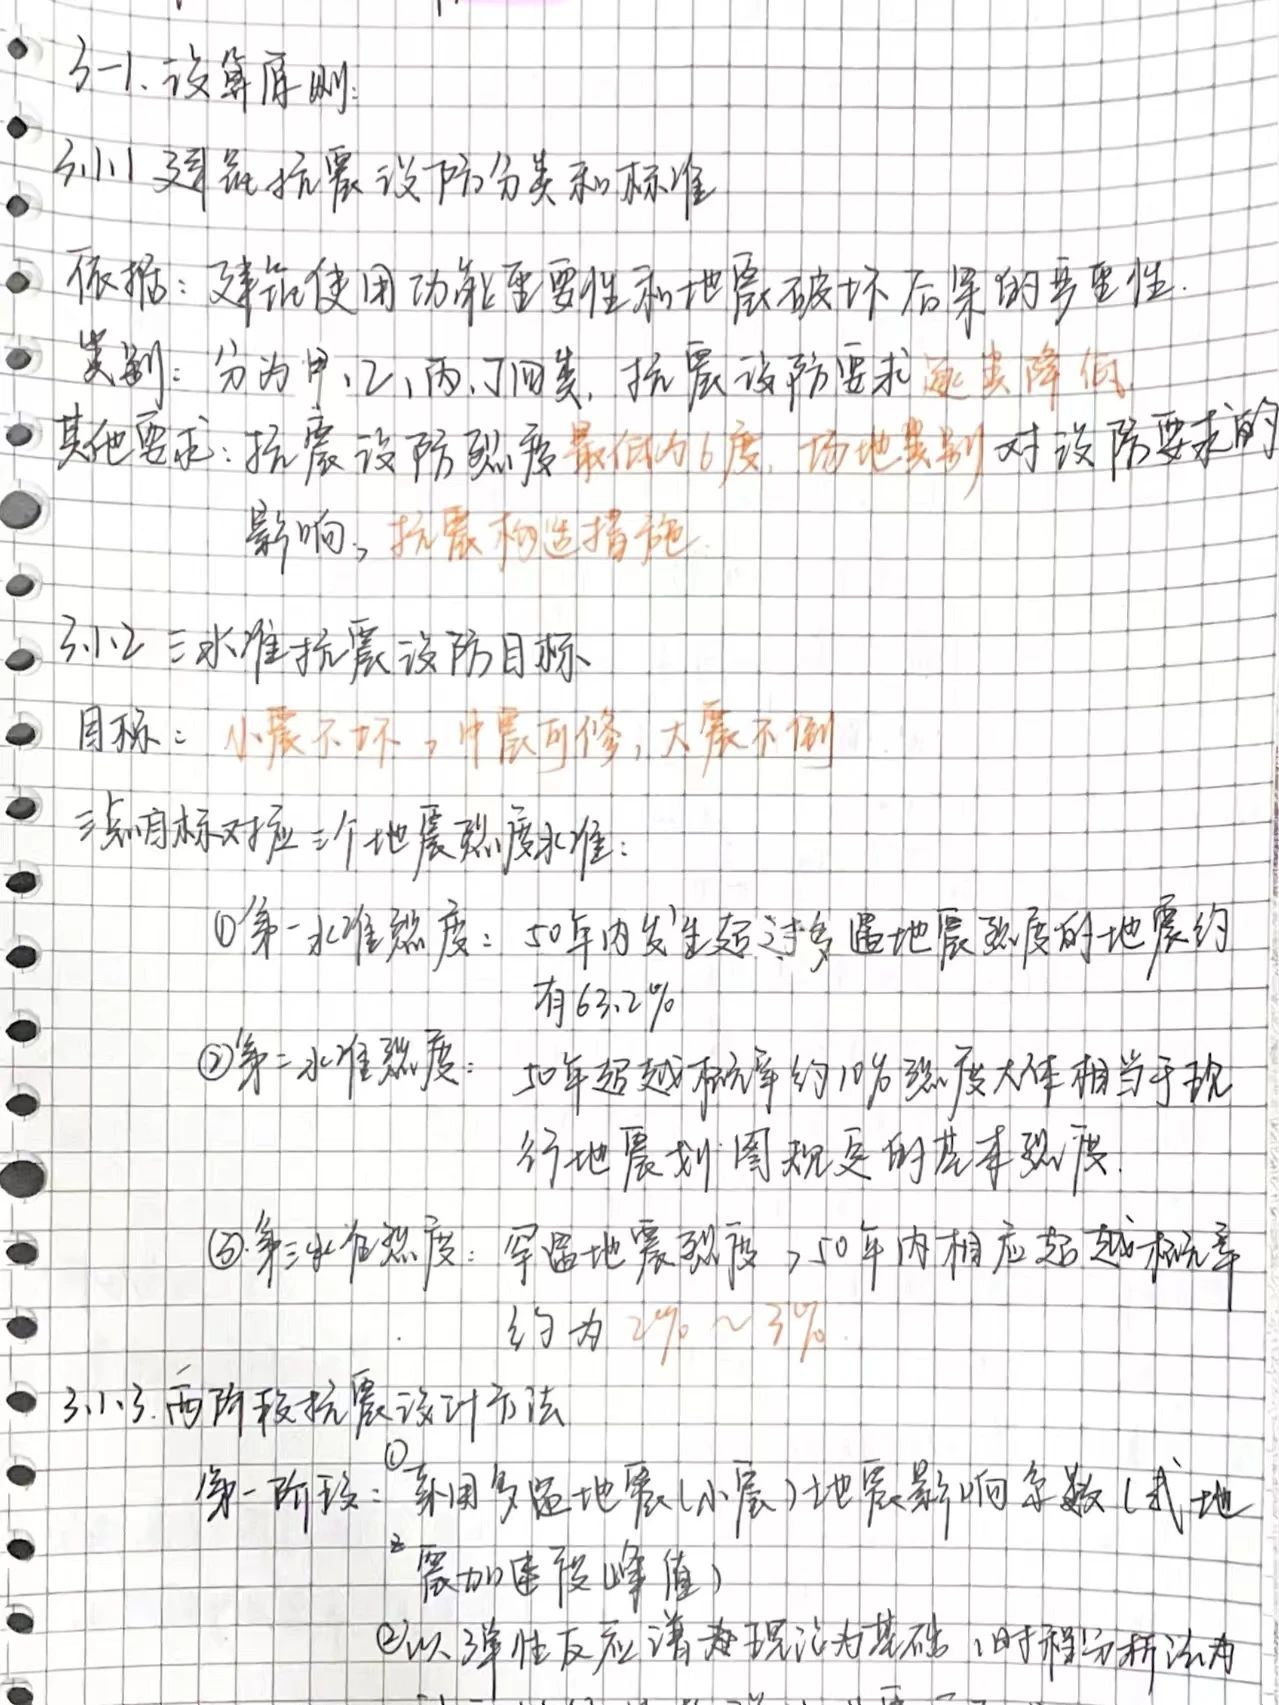 3-1. 设算原则:
3.1.1 建筑抗震设防分类和标准
依据: 建筑使用功能重要性和地震破坏后果的严重性.
类别: 分为甲、乙、丙、丁四类, 抗震设防要求逐类降低
其他要求: 抗震设防烈度最低为6度, 场地类别对设防要求的
影响, 抗震构造措施.
3.1.2 三水准抗震设防目标
目标: 小震不坏, 中震可修, 大震不倒
三点目标对应三个地震烈度水准:
①第一水准烈度: 50年内发生超过多遇地震烈度的地震约
有63.2%
②第二水准烈度: 50年超越概率约10%烈度大体相当于现
行地震划图规定的基本烈度.
③.第三水准烈度: 罕遇地震烈度, 50年内相应超越概率
约为 2%~3%.
3.1.3. 两阶段抗震设计方法
第一阶段: ①采用多遇地震(小震)地震影响系数(或地
震加速度峰值)
②以弹性反应谱理论为基础, 时程分析法为